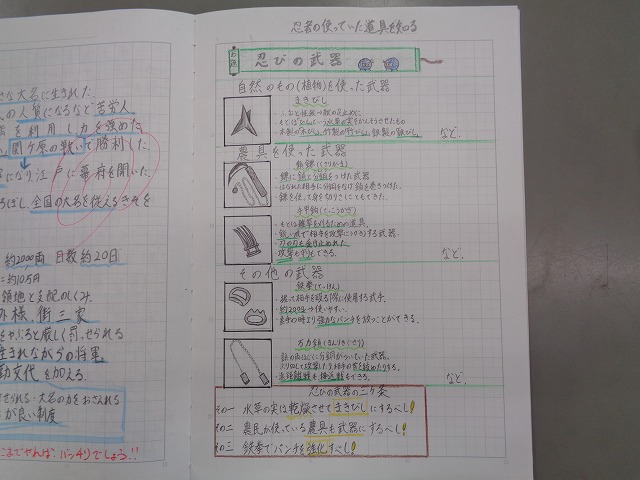 さな大名に生まれた。
の人質になるなど苦労人
を利用し力を強めた
関ヶ原の戦いで勝利した
になり江戸に幕府を開いた。
ろぼし、全国の大名を従えるきそを
約2000両 日数約20日
＝約10万円
領地と支配のしくみ。
外様 御三家
をやぶると厳しく罰せられる
生まれながらの将軍
勤交代 を加える
させられる・大名の力をおさえれる
が良い制度
こまでやれば、バッチリでしょう!!
忍者の使っていた道具を知る
忍びの武器
自然のもの(植物)を使った武器
まきびし
など。
農具を使った武器
鎖鎌(くさりがま)
・鎌に鎖と分銅をつけた武器
・はなれた相手に分銅をなげ鎖を巻きつけた。
・鎌を使って身を切りさくこともできた。
手甲鈎(てっこうかぎ)
・もとは雑草を刈るための道具。
・鋭い爪で相手を攻撃する武器
・刀の刃も受け止めれた。
・攻撃も守りもできる。
など。
その他の武器
鉄拳(てっけん)
・握って相手を殴る際に使用する武手。
・約200gで使いやすい。
・素手の時より強力なパンチを放つことができる。
万力鎖(まんりきぐさり)
・鎖の両はしに分銅がついていた武器。
・遠距離戦も接近戦もできる。
など。
忍びの武器の三ヶ条
その一 水草の実は乾燥させてまきびしにするべし!
その二 農民が使っている農具も武器にするべし!
その三 鉄拳でパンチを強化すべし!